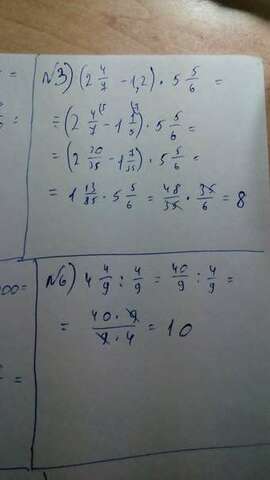 №3) (2 4/7 - 1,2) · 5 5/6 =
= (2 4/7 - 1 1/5) · 5 5/6 =
= (2 20/35 - 1 7/35) · 5 5/6 =
= 1 13/35 · 5 5/6 = 48/35 · 35/6 = 8
№6) 4 4/9 : 4/9 = 40/9 : 4/9 =
= 40·9/9·4 = 10
00=
=